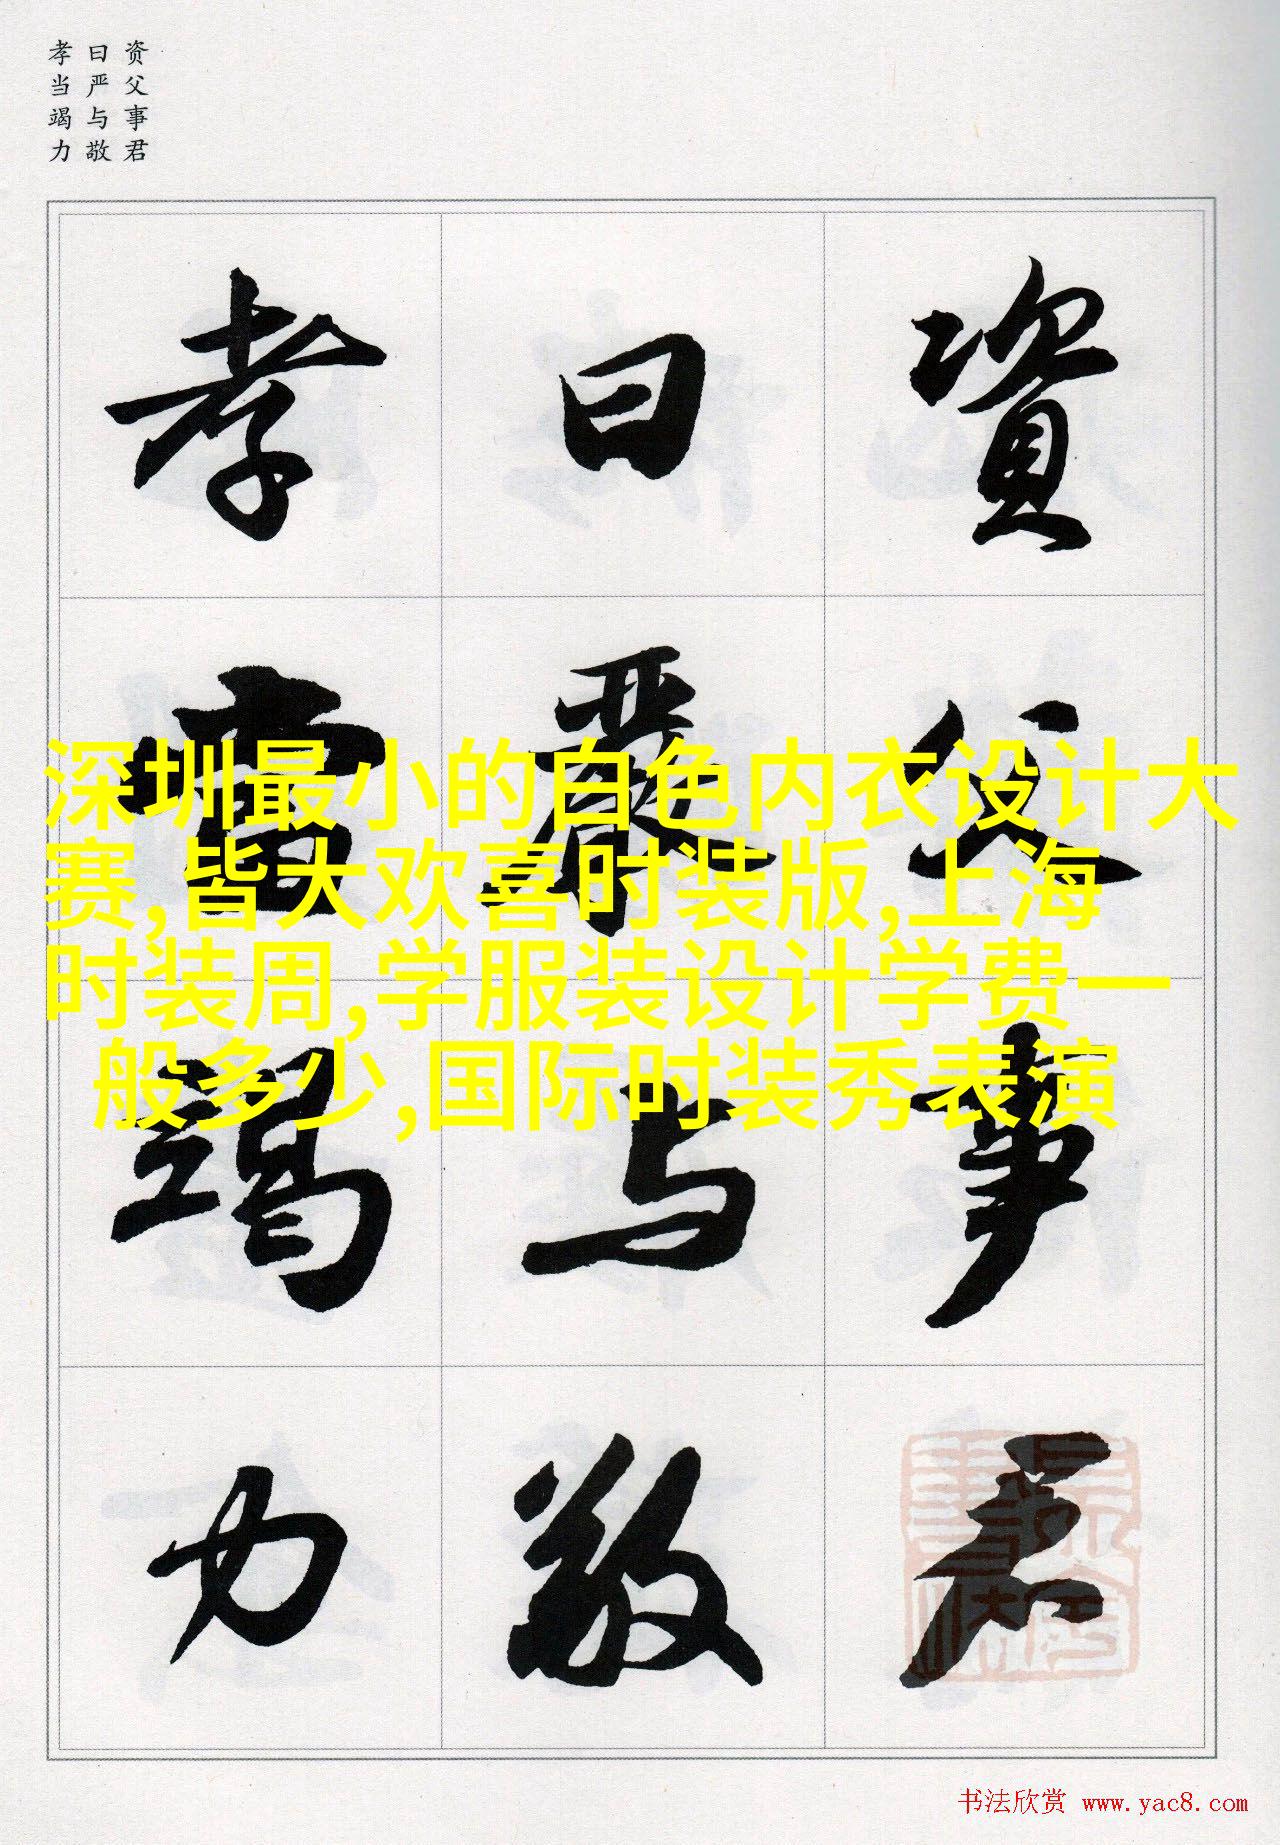 资父事君
曰严与敬
孝当竭力
資父事君
曰嚴与敬
孝當竭力
深圳最小的白色内衣设计大
赛,皆大欢喜时装版,上海
时装周,学服装设计学费一
般多少,国际时装秀表演
书法欣赏 www.yac8.com